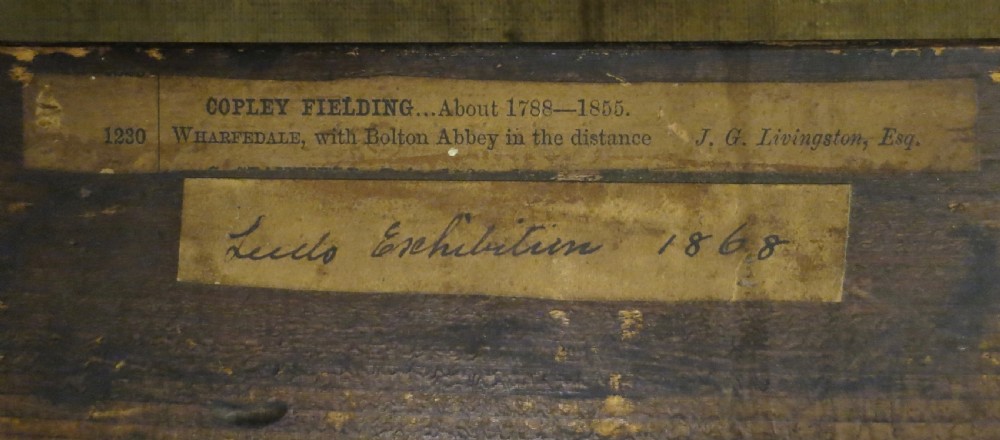 COPLEY FIELDING...About 1788—1855.
1230 WHARFEDALE, with Bolton Abbey in the distance J. G. Livingston, Esq.
Leeds Exhibition 1868